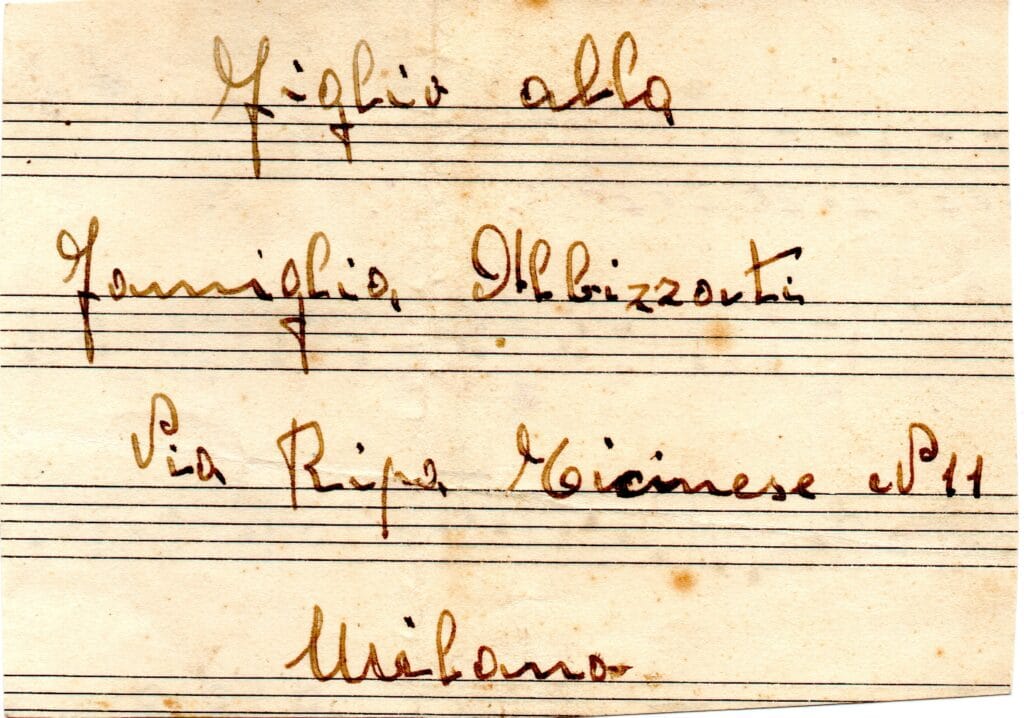 Figlio alla
Famiglia Albizzati
Via Ripa Ticinese N 11
Milano